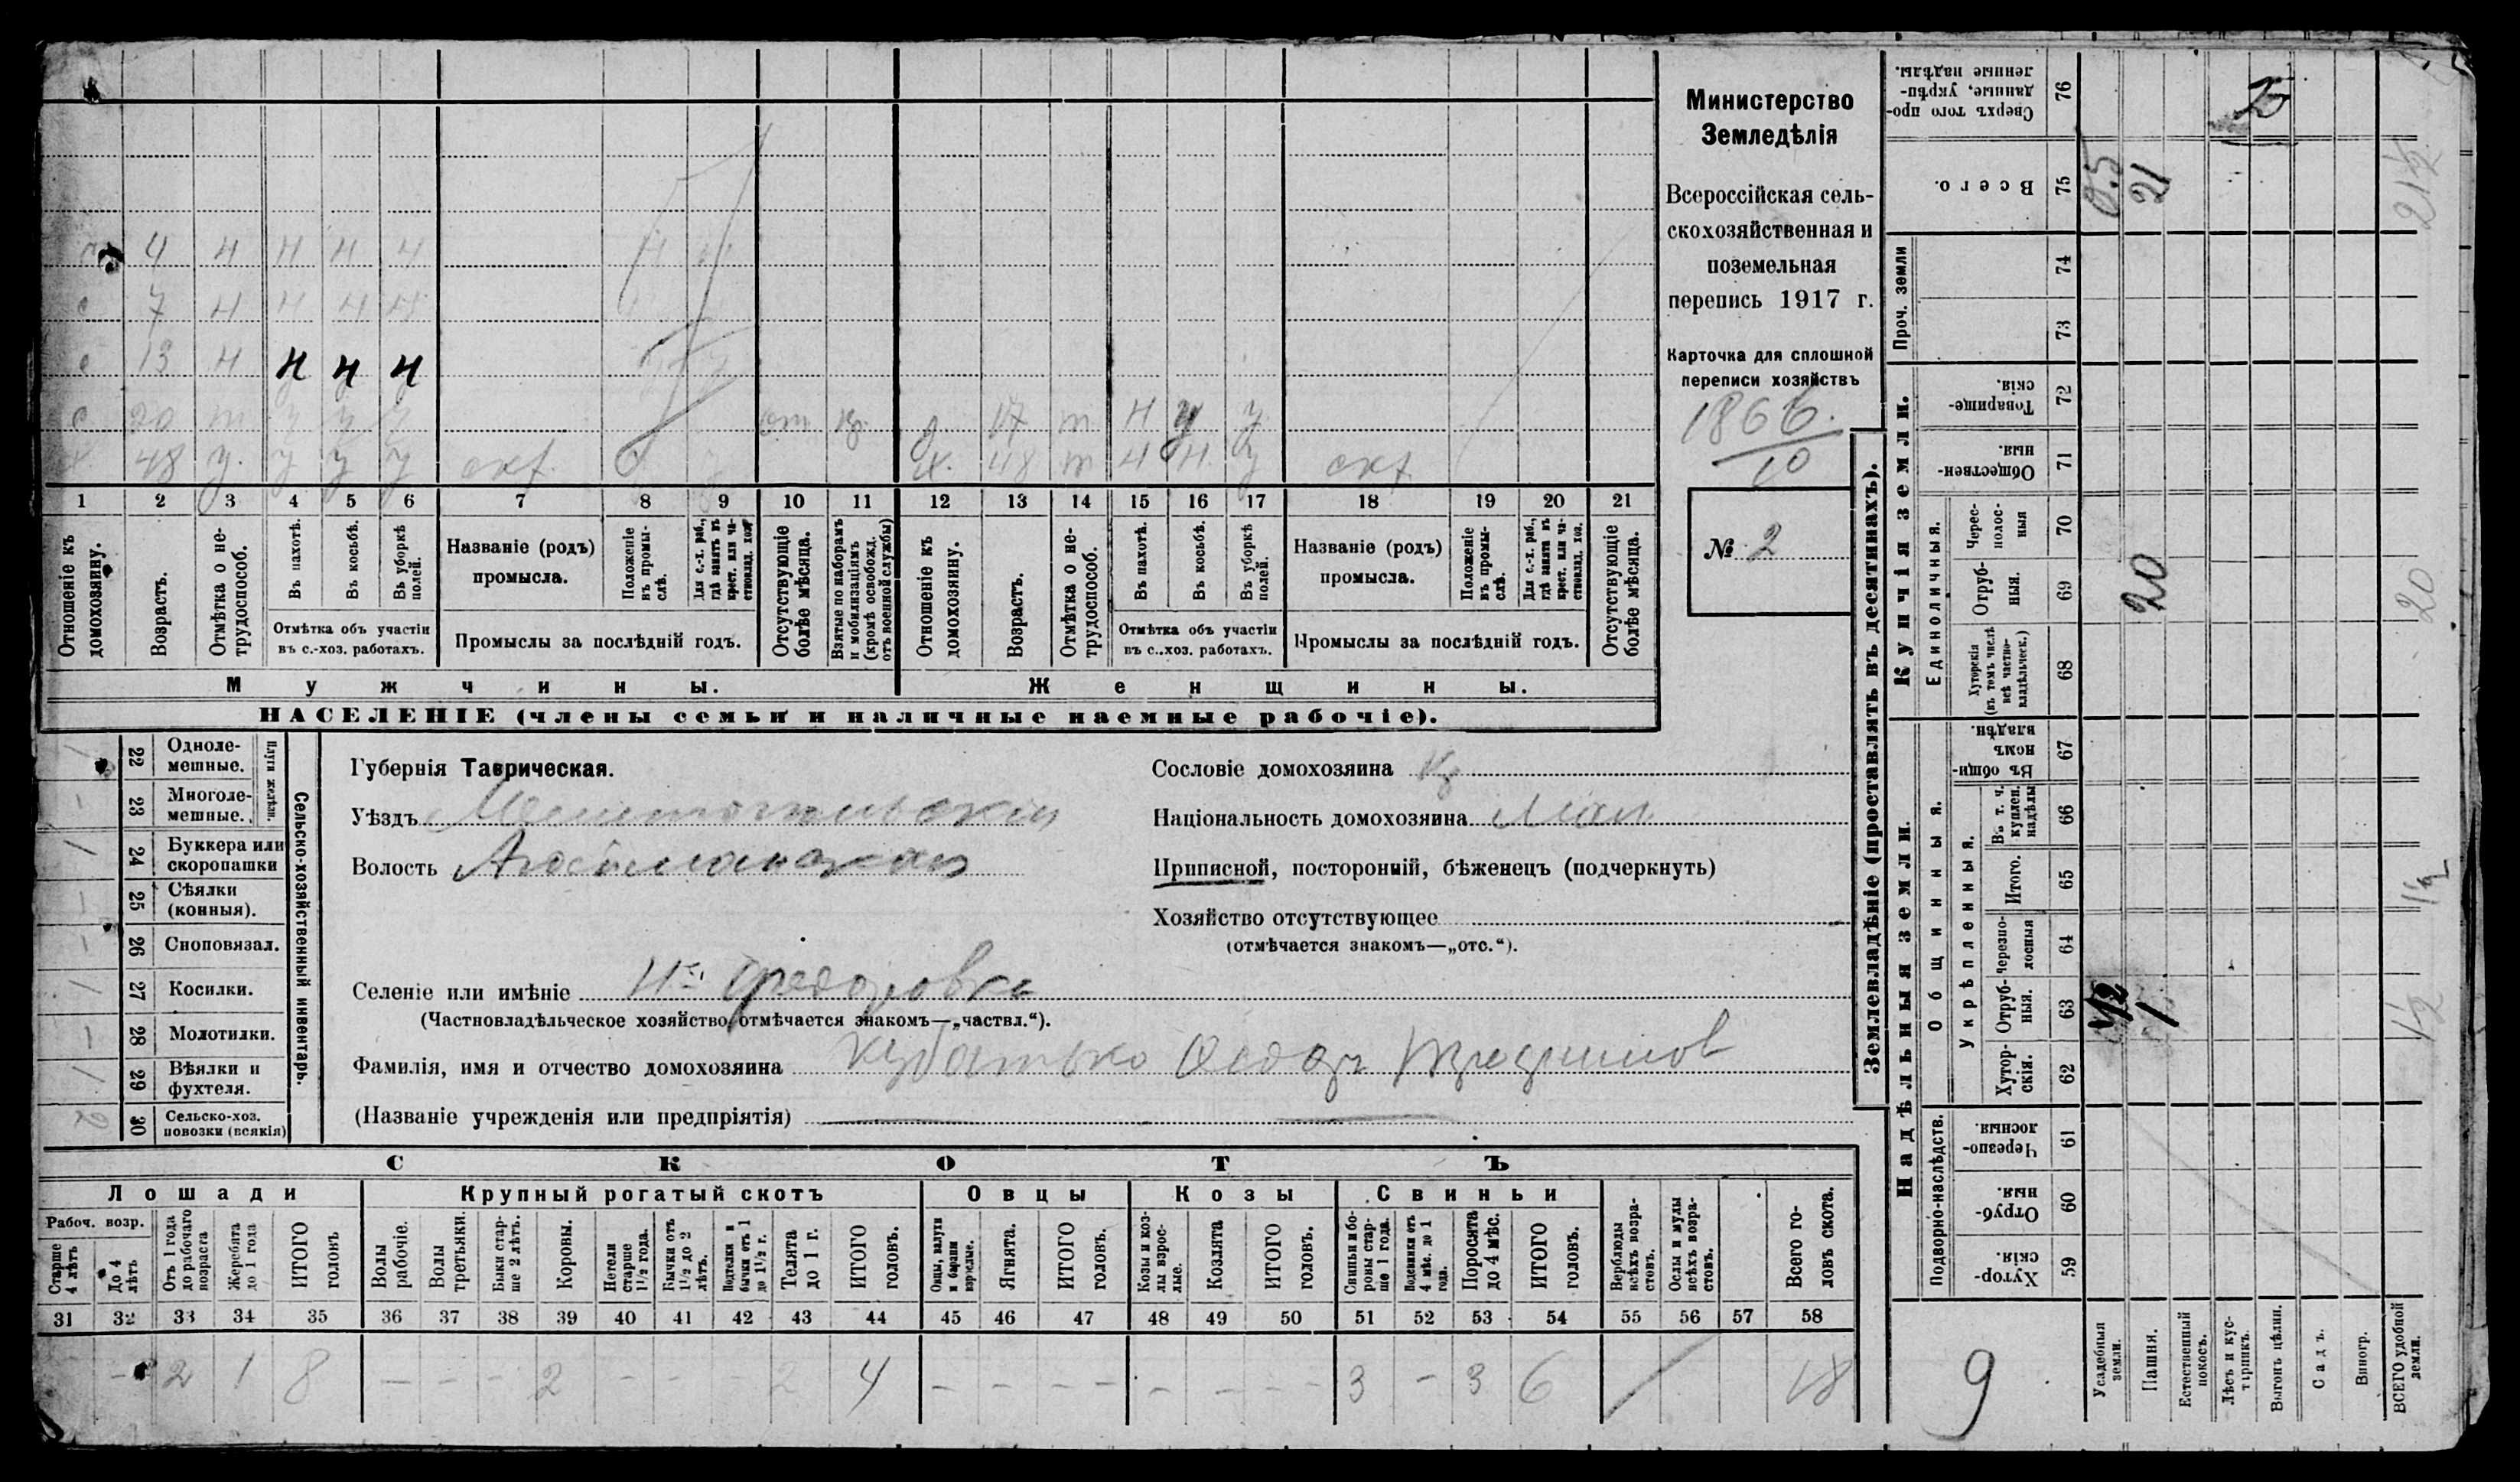 4 н н н н
с 7 н н н н
с 13 н н н н
с 20 т у у у от вз д 17 т н у у
х 48 у у у у скf х. 48 т н н у скf
1 2 3 4 5 6 7 8 9 10 11 12 13 14 15 16 17 18 19 20 21
Отношеніе къ домохозяину.
Возрастъ.
Отмѣтка о не-трудоспособ.
Въ пахотѣ.
Въ косьбѣ.
Въ уборкѣ полей.
Отмѣтка объ участіи
въ с.-хоз. работахъ.
Названіе (родъ)
промысла.
Положеніе въ промы-слѣ.
Для с.-х. раб., гдѣ занятъ въ крест. или ча-стновлад. хоз.
Промыслы за послѣдній годъ.
Отсутствующіе болѣе мѣсяца.
Взятые по наборамъ и мобилизаціямъ (кромѣ освобожд. отъ военной службы)
Отношеніе къ домохозяину.
Возрастъ.
Отмѣтка о не-трудоспособ.
Въ пахотѣ.
Въ косьбѣ.
Въ уборкѣ полей.
Отмѣтка объ участіи
въ с..хоз. работахъ.
Названіе (родъ)
промысла.
Положеніе въ промы-слѣ.
Для с.-х. раб., гдѣ занята въ крест. или ча-стновлад. хоз.
Промыслы за послѣдній годъ.
Отсутствующіе болѣе мѣсяца.
Мужчины.
Женщины.
НАСЕЛЕНІЕ (члены семьи и наличные наемные рабочіе).
Министерство
Земледѣлія
Всероссійская сель-
скохозяйственная и
поземельная
перепись 1917 г.
Карточка для сплошной
переписи хозяйствъ
1866.
10
№ 2
Сельско-хозяйственный инвентарь.
Плуги желѣзн.
22 Одноле-
мешные.
23 Многоле-
мешные.
24 Буккера или
скоропашки
25 Сѣялки
(конныя).
26 Сноповязал.
27 Косилки.
28 Молотилки.
29 Вѣялки и
фухтеля.
30 Сельско-хоз.
повозки (всякія)
2
Губернія Таврическая.
Уѣздъ Мелитопольскій
Волость
Селеніе или имѣніе Н. Федоровка
(Частновладѣльческое хозяйство отмѣчается знакомъ—„частвл.“).
Фамилія, имя и отчество домохозяина Кубатько Федор
(Названіе учрежденія или предпріятія)
Сословіе домохозяина Кр
Національность домохозяина Мал
Приписной, посторонній, бѣженецъ (подчеркнуть)
Хозяйство отсутствующее
(отмѣчается знакомъ—„отс.“).
СКОТЪ
Лошади
Рабоч. возр.
Старше 4 лѣтъ
До 4 лѣтъ
Отъ 1 года до рабочаго возраста
Жеребята до 1 года
ИТОГО головъ
Крупный рогатый скотъ
Волы рабочіе.
Волы третьяки.
Быки стар-ше 2 лѣтъ.
Коровы.
Нетели старше 1½ года.
Бычки отъ 1½ до 2 лѣтъ.
Подтелки и бычки отъ 1 до 1½ г.
Телята до 1 г.
ИТОГО головъ.
Овцы
Овцы, валухи и бараны взрослые.
Ягнята.
ИТОГО головъ.
Козы
Козы и коз-лы взрос-лые.
Козлята
ИТОГО головъ.
Свиньи
Свиньи и бо-ровы стар-ше 1 года.
Подсвинки отъ 4 мѣс. до 1 года.
Поросята до 4 мѣс.
ИТОГО головъ.
Верблюды всѣхъ возра-стовъ.
Ослы и мулы всѣхъ возра-стовъ.
Всего го-ловъ скота.
31 32 33 34 35 36 37 38 39 40 41 42 43 44 45 46 47 48 49 50 51 52 53 54 55 56 57 58
- 2 1 8 - - - 2 - - - 2 4 - - - - - - - 3 - 3 6 18
Землевладѣніе (проставлять въ десятинахъ).
Сверхъ того про-данные, укрѣп-ленные надѣлы. 76
25
Всего. 75
0.5 21 21½
Проч. земли
74
73
Купчія земли.
Товарище-скія. 72
Обществен-ныя. 71
Единоличныя.
Черес-полос-ныя 70
Отруб-ныя. 69
20 20
Хуторскія (въ томъ числѣ всѣ частно-владѣльческ.) 68
Надѣльныя земли.
Общинныя.
Въ общин-номъ владѣн. 67
Укрѣпленныя.
Въ т. ч. куплен. надѣлы 66
Итого. 65
1½
Черезпо-лосныя 64
Отруб-ныя. 63
½ 1 1½
Хутор-скія. 62
Подворно-наслѣдств.
Черезпо-лосныя. 61
Отруб-ныя. 60
Хутор-скія. 59
9
Усадебныя земли.
Пашня.
Естественный покосъ.
Лѣсъ и кус-тарникъ.
Выгонъ цѣлин.
Садъ.
Виногр.
ВСЕГО удобной земли.